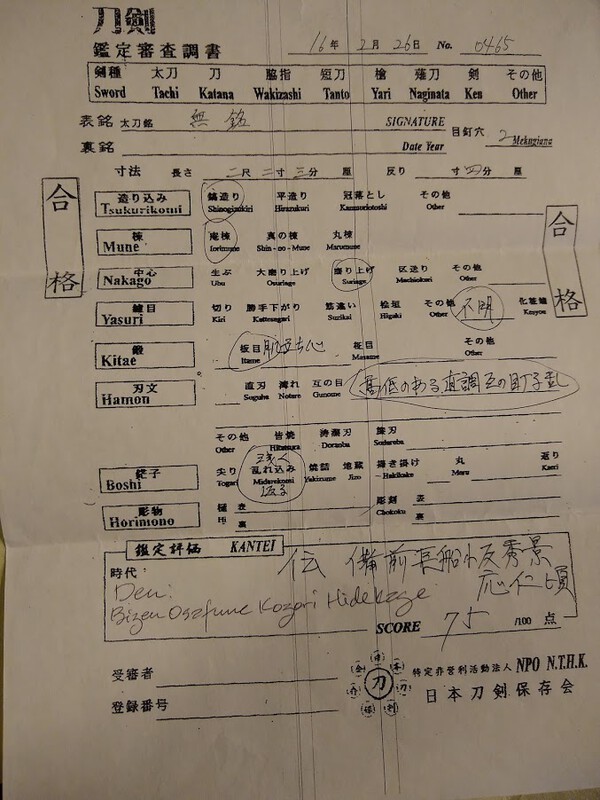 刀剣
鑑定審査調書 16年 2月 26日 No. 0465
剣種 太刀 刀 脇指 短刀 槍 薙刀 剣 その他
Sword Tachi Katana Wakizashi Tanto Yari Naginata Ken Other
表銘 太刀銘 無銘 SIGNATURE 目釘穴 2 Mekugiana
裏銘 Date Year
寸法 長さ 二尺 二寸 三分 厘 反り 寸 四分 厘
合格
合格
造り込み 鎬造り 平造り 冠落とし その他
Tsukurikomi Shinogizukuri Hirazukuri Kanmuriotoshi Other
棟 庵棟 真の棟 丸棟
Mune Iorimune Shin-no-Mune Marumune
中心 生ぶ 大磨り上げ 磨り上げ 区送り その他
Nakago Ubu Osuriage Suriage Machiokuri Other
鑢目 切り 勝手下がり 筋違い 桧垣 その他 不明 化粧鑢
Yasuri Kiri Kattesagari Surikai Higaki Other Kesyou
鍛 板目 肌立ち心 柾目 その他
Kitae Itame Masame Other
刃文 直刃 濤れ 互の目 高低のある直調互の目丁子乱
Hamon Suguha Notare Gunome
その他 皆焼 涛瀾刃 簾刃
Other Hitatsura Doranba Sudareba
鋩子 尖り 乱れ込み 焼詰 地蔵 掃き掛け 丸 返り
Boshi Togari Midarekomi Yakizume Jizo Hakikake Maru Kaeri
返る
彫物 樋 表 彫刻 表
Horimono Hi 裏 Chokoku 裏
鑑定評価 KANTEI
時代: 伝 備前長船小反秀景
Den: 応仁頃
Bizen Osafune Kozori Hidekage
SCORE 75 /100 点
受審者
登録番号
刀
特定非営利活動法人 NPO N.T.H.K.
日本刀剣保存会